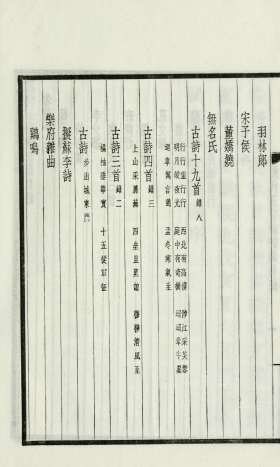 羽林郎
宋子侯
董嬌嬈
無名氏
古詩十九首 錄八
行行重行行 西北有高樓 涉江采芙蓉
明月皎夜光 庭中有奇樹 迢迢牽牛星
迴車駕言邁 孟冬寒氣至
古詩四首 錄三
上山采蘼蕪 四坐且莫諠 穆穆清風至
古詩三首 錄二
橘柚垂華實 十五從軍征
古詩 步出城東門
擬蘇李詩
樂府雜曲
鷄鳴